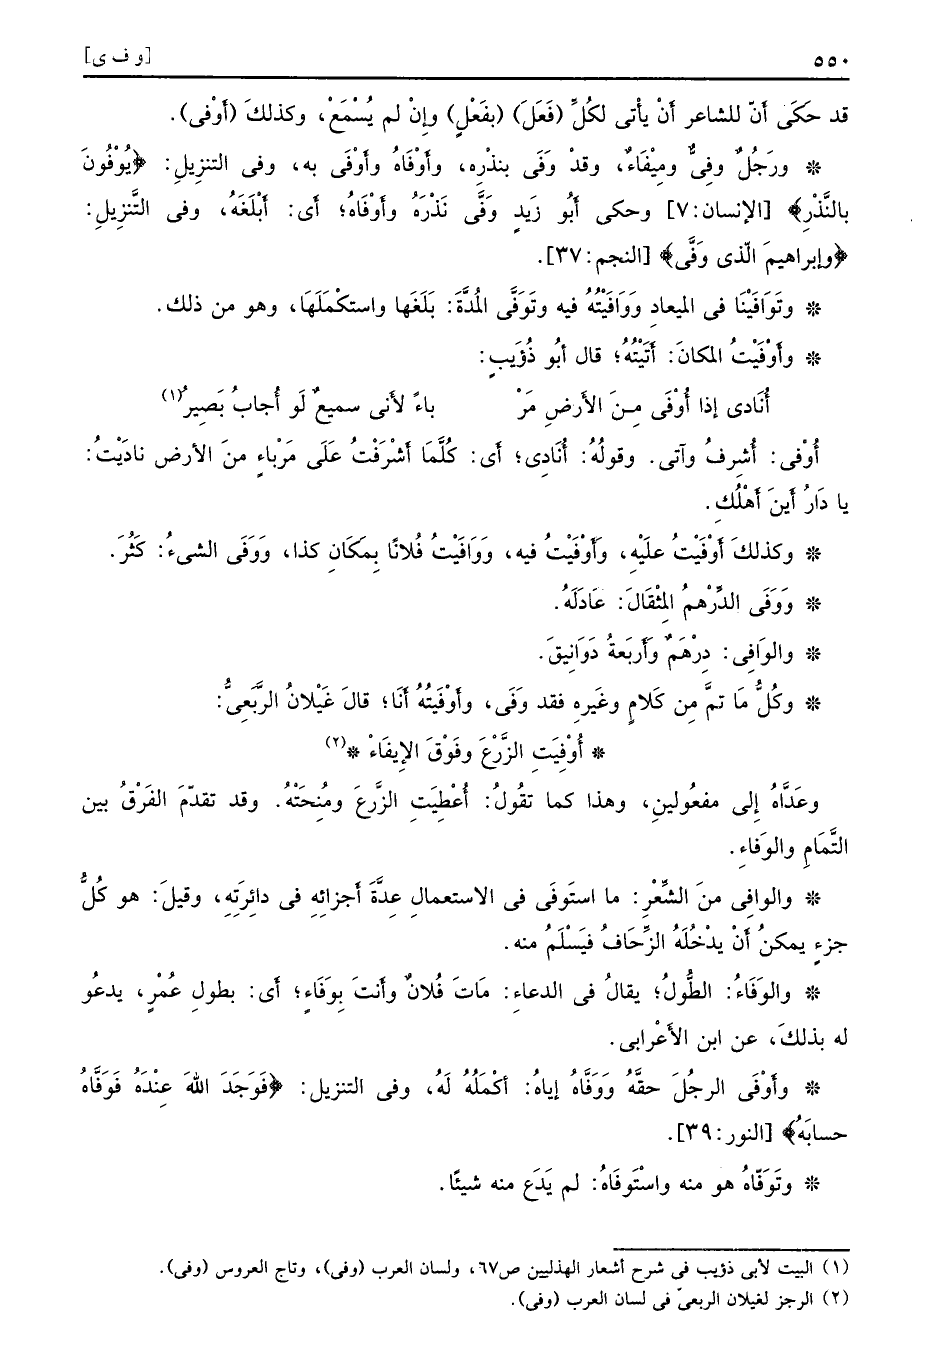 ٥٥٠ [و ف ى]
قد حَكَى أنّ للشاعر أنْ يأتى لكلِّ (فَعَلَ) (بفَعْلٍ) وإنْ لم يُسْمَعْ، وكذلكَ (أوْفى).
* ورَجُلٌ وفِىٌّ ومِيفَاءٌ، وقدْ وَفَى بنذْرِه، وأوْفَاهُ وأوْفَى به، وفى التنزيلِ: ﴿يُوْفُونَ
بالنَّذْرِ﴾ [الإنسان:٧] وحكى أبُو زَيدٍ وَفَّى نَذْرَهُ وأوْفَاهُ؛ أى: أبْلَغَهُ، وفى التَّنزِيلِ:
﴿وإبراهيمَ الّذى وَفَّى﴾ [النجم:٣٧].
* وتَوَافَيْنَا فى الميعادِ وَوَافَيْتُهُ فيه وتَوَفَّى المُدَّةَ: بَلَغَها واستكْمَلَهَا، وهو من ذلك.
* وأوْفَيْتُ المكانَ: أتَيْتُهُ؛ قال أبُو ذُؤَيبٍ:
أُنَادى إذا أُوْفَى مِنَ الأرضِ مَرْ باءً لأنى سميعٌ لَو أُجابُ بَصِيرُ(١)
أُوْفى: أُشرِفُ وآتى. وقولُهُ: أُنَادى؛ أى: كُلَّمَا أشْرَفْتُ عَلَى مَرْباءٍ منَ الأرض نادَيْتُ:
يا دَارُ أينَ أهْلُكِ.
* وكذلكَ أوْفَيْتُ عليْهِ، وَأوْفَيْتُ فيه، وَوَافَيْتُ فُلانًا بِمَكَانِ كذا، ووَفَى الشىءُ: كَثُرَ.
* وَوَفَى الدِّرْهمُ المِثْقَالَ: عَادَلَهُ.
* والوَافِى: دِرْهَمٌ وأربَعةُ دَوَانِيقَ.
* وكُلُّ مَا تمَّ مِن كَلامٍ وغَيرِه فقد وَفَى، وأوْفَيْتُهُ أنَا؛ قالَ غَيْلانُ الرَّبَعىُّ:
* أُوْفَيَتِ الزَّرْعَ وفَوْقَ الإيفَاءْ *(٢)
وعَدَّاهُ إلى مفعُولينِ، وهذا كما تقُولُ: أُعْطِيَتِ الزَّرعَ ومُنحَتْهُ. وقد تقدّمَ الفَرْقُ بين
التَّمَامِ والوَفاءِ.
* والوافِى منَ الشِّعْرِ: ما استَوفَى فى الاستعمالِ عِدَّةَ أجزائهِ فى دائرَتِه، وقيلَ: هو كُلُّ
جزءٍ يمكنُ أنْ يدْخُلَهُ الزِّحَافُ فيَسْلَمُ منه.
* والوَفَاءُ: الطُّولُ؛ يقالُ فى الدعاءِ: مَاتَ فُلانٌ وأنتَ بِوفَاءٍ؛ أى: بطولِ عُمْرٍ، يدعُو
له بذلكَ، عن ابن الأعْرابى.
* وأوْفَى الرجُلَ حقَّهُ وَوَفَّاهُ إياهُ: أكْمَلُهُ لَهُ، وفى التنزيل: ﴿فَوَجَدَ اللهَ عِنْدَهُ فَوَفَّاهُ
حسابَهُ﴾ [النور:٣٩].
* وتَوَفّاهُ هو منه واستَوفَاهُ: لم يَدَع منه شيئًا.
(١) البيت لأبى ذؤيب فى شرح أشعار الهذليين ص٦٧، ولسان العرب (وفى)، وتاج العروس (وفى).
(٢) الرجز لغيلان الربعىّ فى لسان العرب (وفى).